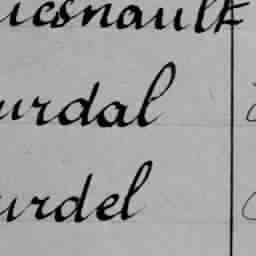 uesnault
urdal
urdel